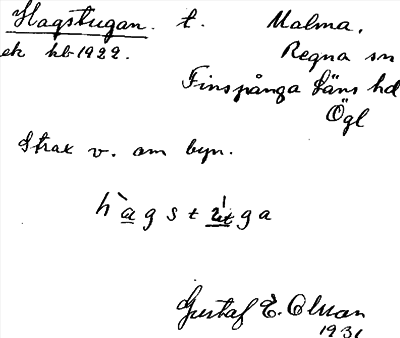 Hagstugan. t. Malma,
ek kb 1922. Regna sn
Finspånga läns hd
Ögl
Strax v. om byn.
Gustaf E. Olson
1931